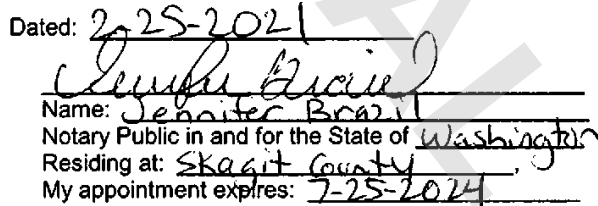 Dated: 2-25-2021
Jennifer Brazil
Name: Jennifer Brazil
Notary Public in and for the State of Washington
Residing at: Skagit County,
My appointment expires: 7-25-2024